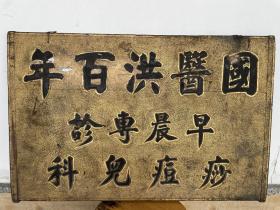 國醫洪百年
早晨專診
痧痘兒科